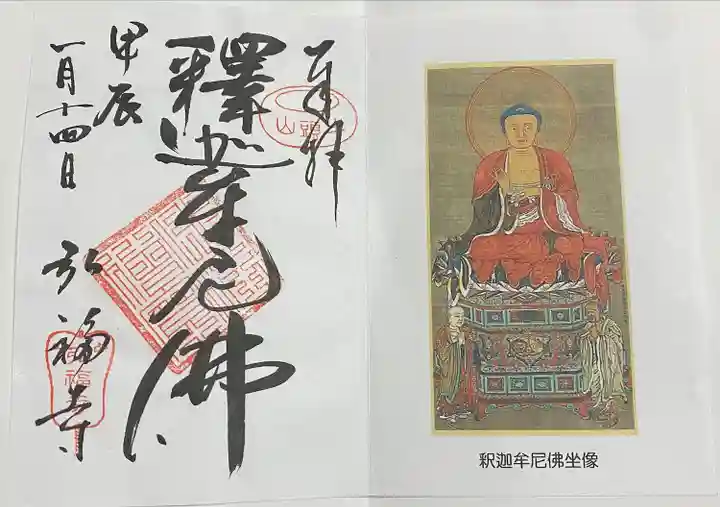 奉拝
釋迦牟尼佛
甲辰
一月十四日
弘福寺
釈迦牟尼佛坐像